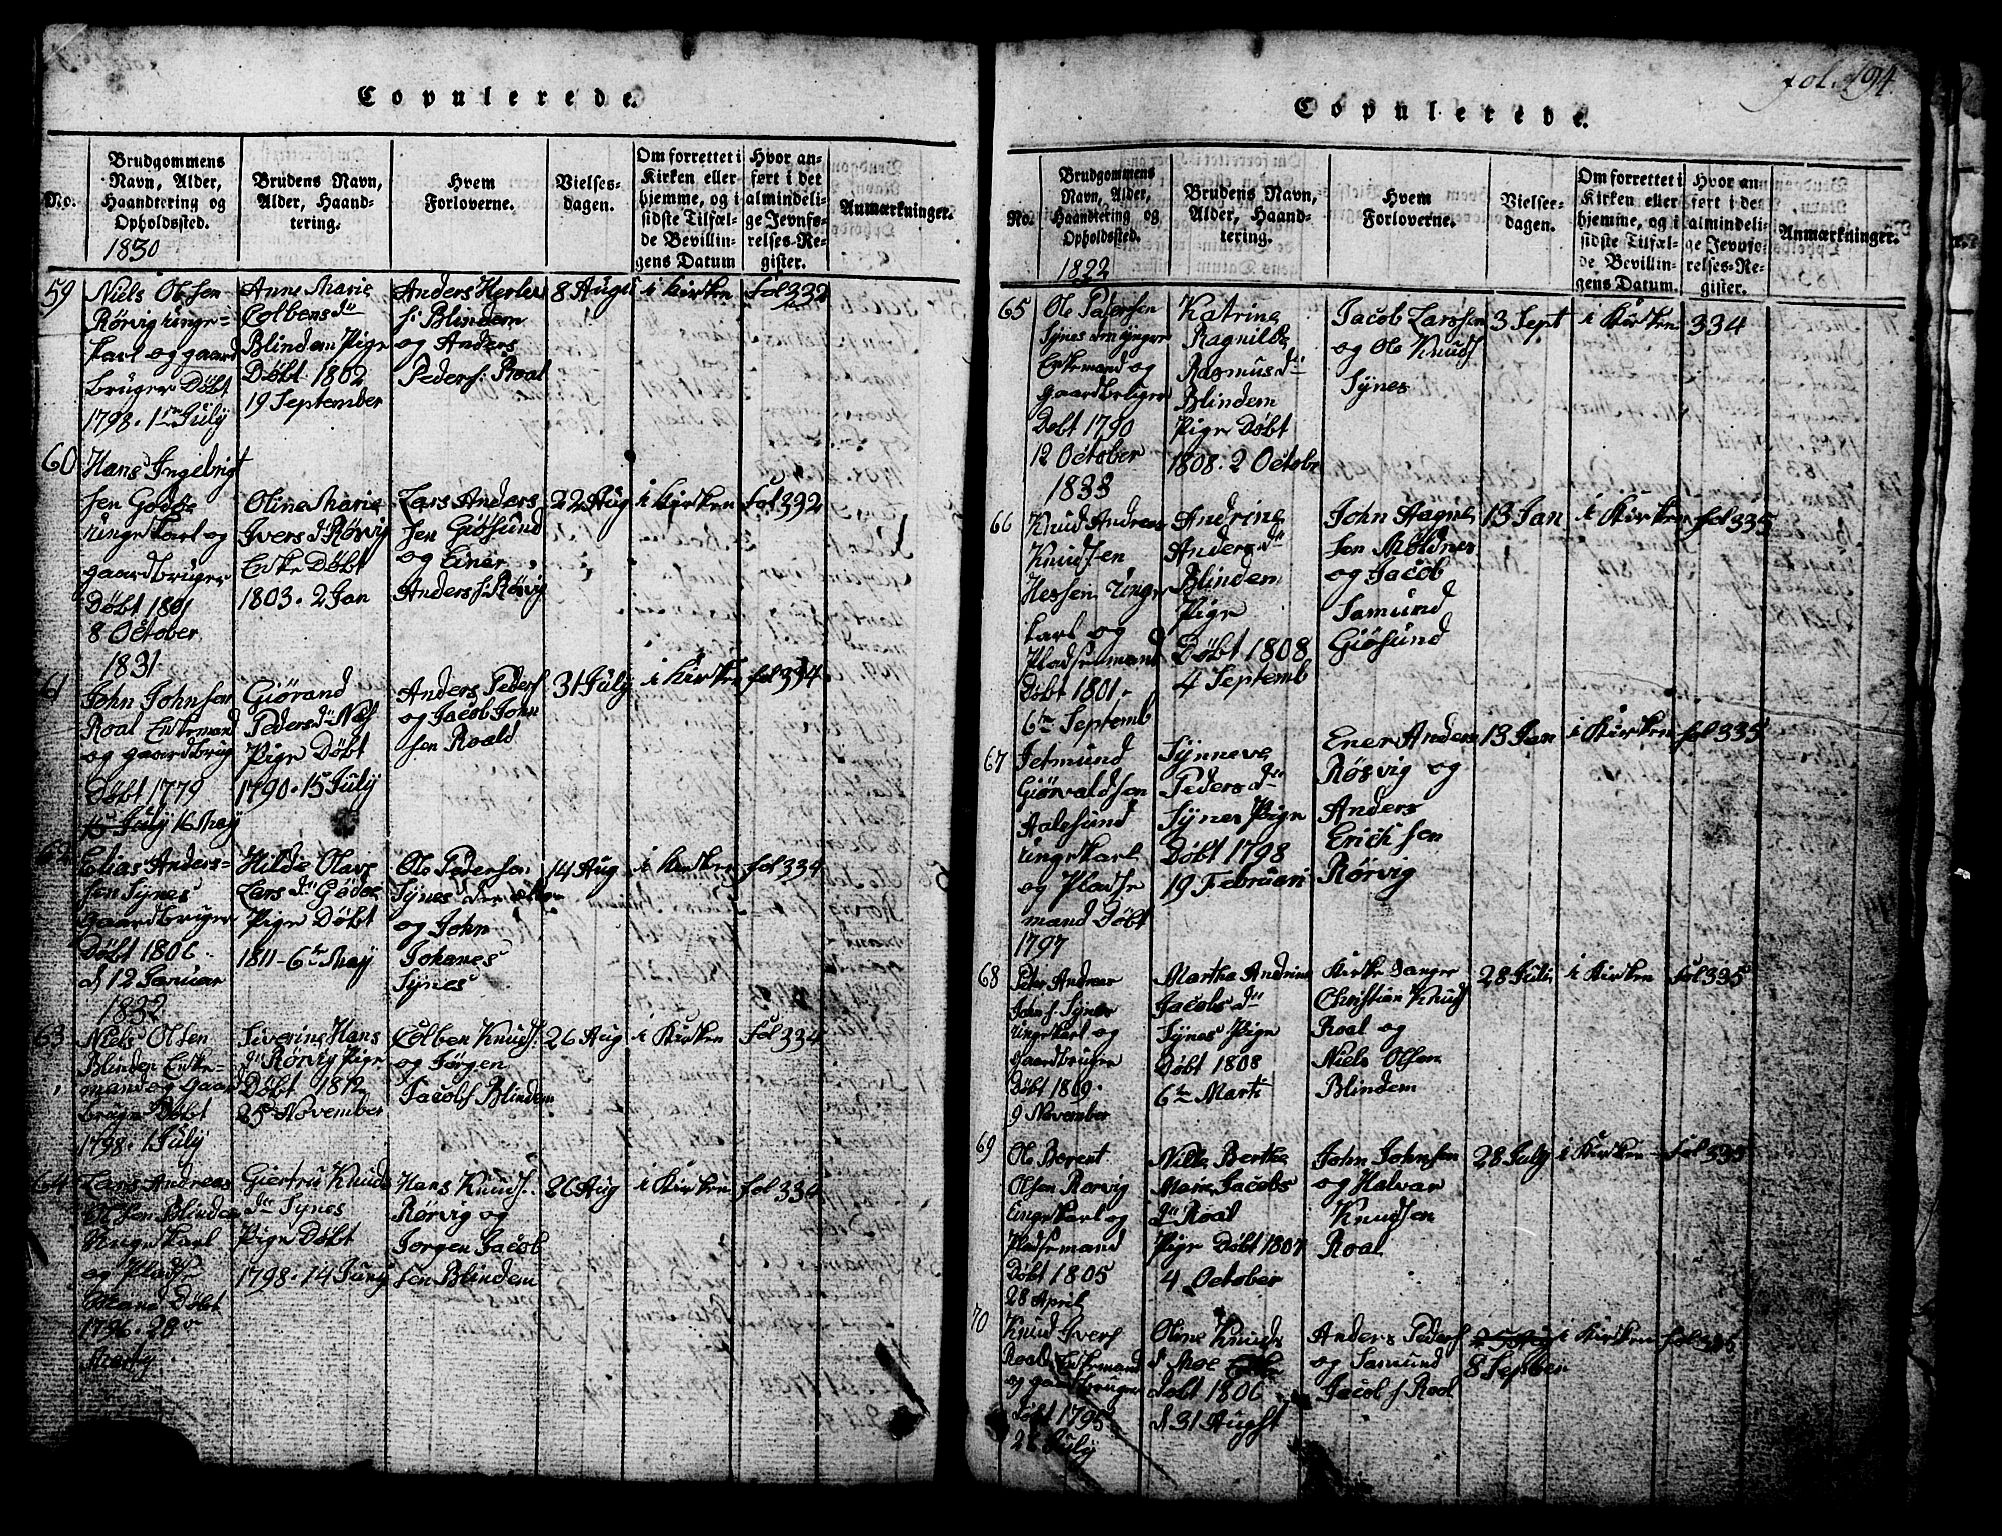 fol. 194
Copulerede.
No.
Brudgommens
Navn, Alder,
Haandtering og
Opholdssted.
Brudens Navn,
Alder, Haand-
tering.
Hvem
Forloverne.
Vielses-
dagen.
Om forrettet i
Kirken eller
hjemme, og i
sidste Tilfæl-
de Bevillin-
gens Datum
Hvor an-
ført i det
almindeli-
ge Jevnfø-
relses-Re-
gister.
Anmærkninger.
1830
59
Niels Olsen
Rørvig unge-
karl og gaard
bruger Døbt
1798. 1ne July
Anne Marie
Colbensdr
Blindem Pige
Døbt 1802
19 September
Anders
s: Blindem
og Anders
Peders: Roal
8 Augu
i Kirken
fol 332
60
Hans Ingebrigt
sen Godøe
ungekarl og
gaardbruger
Døbt 1801
8 October
Oline Marie
Ivers dr Rørvig
Enke Døbt
1803. 2 Jan
Lars Anders
sen Giøsund
og Einer
Anders s: Rørvig
22 Aug
i Kirken
fol 392
1831
61
John Johnsen
Roal Enkemand
og gaardbrug
Døbt 1779
15 July 16 May
Giørand
Peders dr Næs
Pige Døbt
1790. 15 July
Anders Peders
og Jacob John
sen Roald
31 July
i Kirken
fol 334
62
Elias Anders-
sen Synes
Gaardbruger
Døbt 1806
d 12 Januar
Hilde Olave
Lars dr Godøe
Pige Døbt
1811- 6te May
Ole Pedersen
Synes den
og John
Johanes
Synes
14 Aug
i Kirken
fol 334
1832
63
Niels Olsen
Blindem Enke-
mand og Gaard
bruger Døbt
1798. 1 July
Siverine Hans
dr Rørvig Pige
Døbt 1812
25 November
Colben Knuds:
og Jørgen
Jacobs Blindem
26 Aug
i Kirken
fol 334
64
Lars Andreas
Olsen Blindem
Ungekarl
og Pladse
Mand Døbt
1796. 28de
Giertru Knuds
dr Synes
Pige Døbt
1798. 14 Juny
Hans Knuds:
Rørvig og
Jorgen Jacob
sen Blindem
26 Aug
i Kirken
fol 334
Copulerede.
No.
Brudgommens
Navn, Alder,
Haandtering og
Opholdssted.
Brudens Navn,
Alder, Haand-
tering.
Hvem
Forloverne.
Vielses-
dagen.
Om forrettet i
Kirken eller
hjemme, og i
sidste Tilfæl-
de Bevillin-
gens Datum.
Hvor an-
ført i det
almindeli-
ge Jevnfø-
relses-Re-
gister.
Anmærkninger.
1822
65
Ole Pedersen
Synes den yngre
Enkemand og
gaardbruger
Døbt 1790
12 October
Katrine
Ragnilde
Rasmus dr
Blindem
Pige Døbt
1808. 2 Octobe
Jacob Larssen
og Ole Knuds
Synes
3 Sept
i Kirken
334
1833
66
Knud Andreas
Knudsen
Hessen unge
karl og
Pladsemand
Døbt 1801-
6te Septemb
Andrine
Anders dr
Blindem
Pige
Døbt 1808
4 Septemb
John Aagne
sen Moldnes
og Jacob
Samund
Giøsund
13 Jan
i Kirken
fol 335
67
Jetmund
Giørvaldsen
Aalesund
ungekarl
og Pladse
mand Døbt
1797
Synneve
Peders dr
Synes Pige
Døbt 1798
19 Februari
Ener Anders
Rørvig og
Anders
Erichsen
Rørvig
13 Jan
i Kirken
fol 335
68
Peter Andreas
John s. Synes
Ungekarl og
gaardbruger
Døbt 1809.
9 November
Martha Andrine
Jacobs dr
Synes Pige
Døbt 1808
6te Marti
Kirke Sanger
Christian Knuds
Roal og
Niels Olsen
Blindem
28 Juli
i Kirken
fol 335
69
Ole Berent
Olsen Rørvig
Ungekarl og
Pladsemand
Døbt 1805
28 April
Nille Bertha
Marie Jacobs
dr Roal
Pige Døbt 1807
4 October
John Johnsen
og Halvar
Knudsen
Roal
28 July
i Kirken
fol 335
70
Knud Ivers
Roald Enkemand
og gaardbruger
Døbt 1795
Oline Knuds
d Moe
døbt 1806
d 31 Augst
Anders Peders
og Samund
Jacob s Roal
8 Septber
i Kirken
fol 335